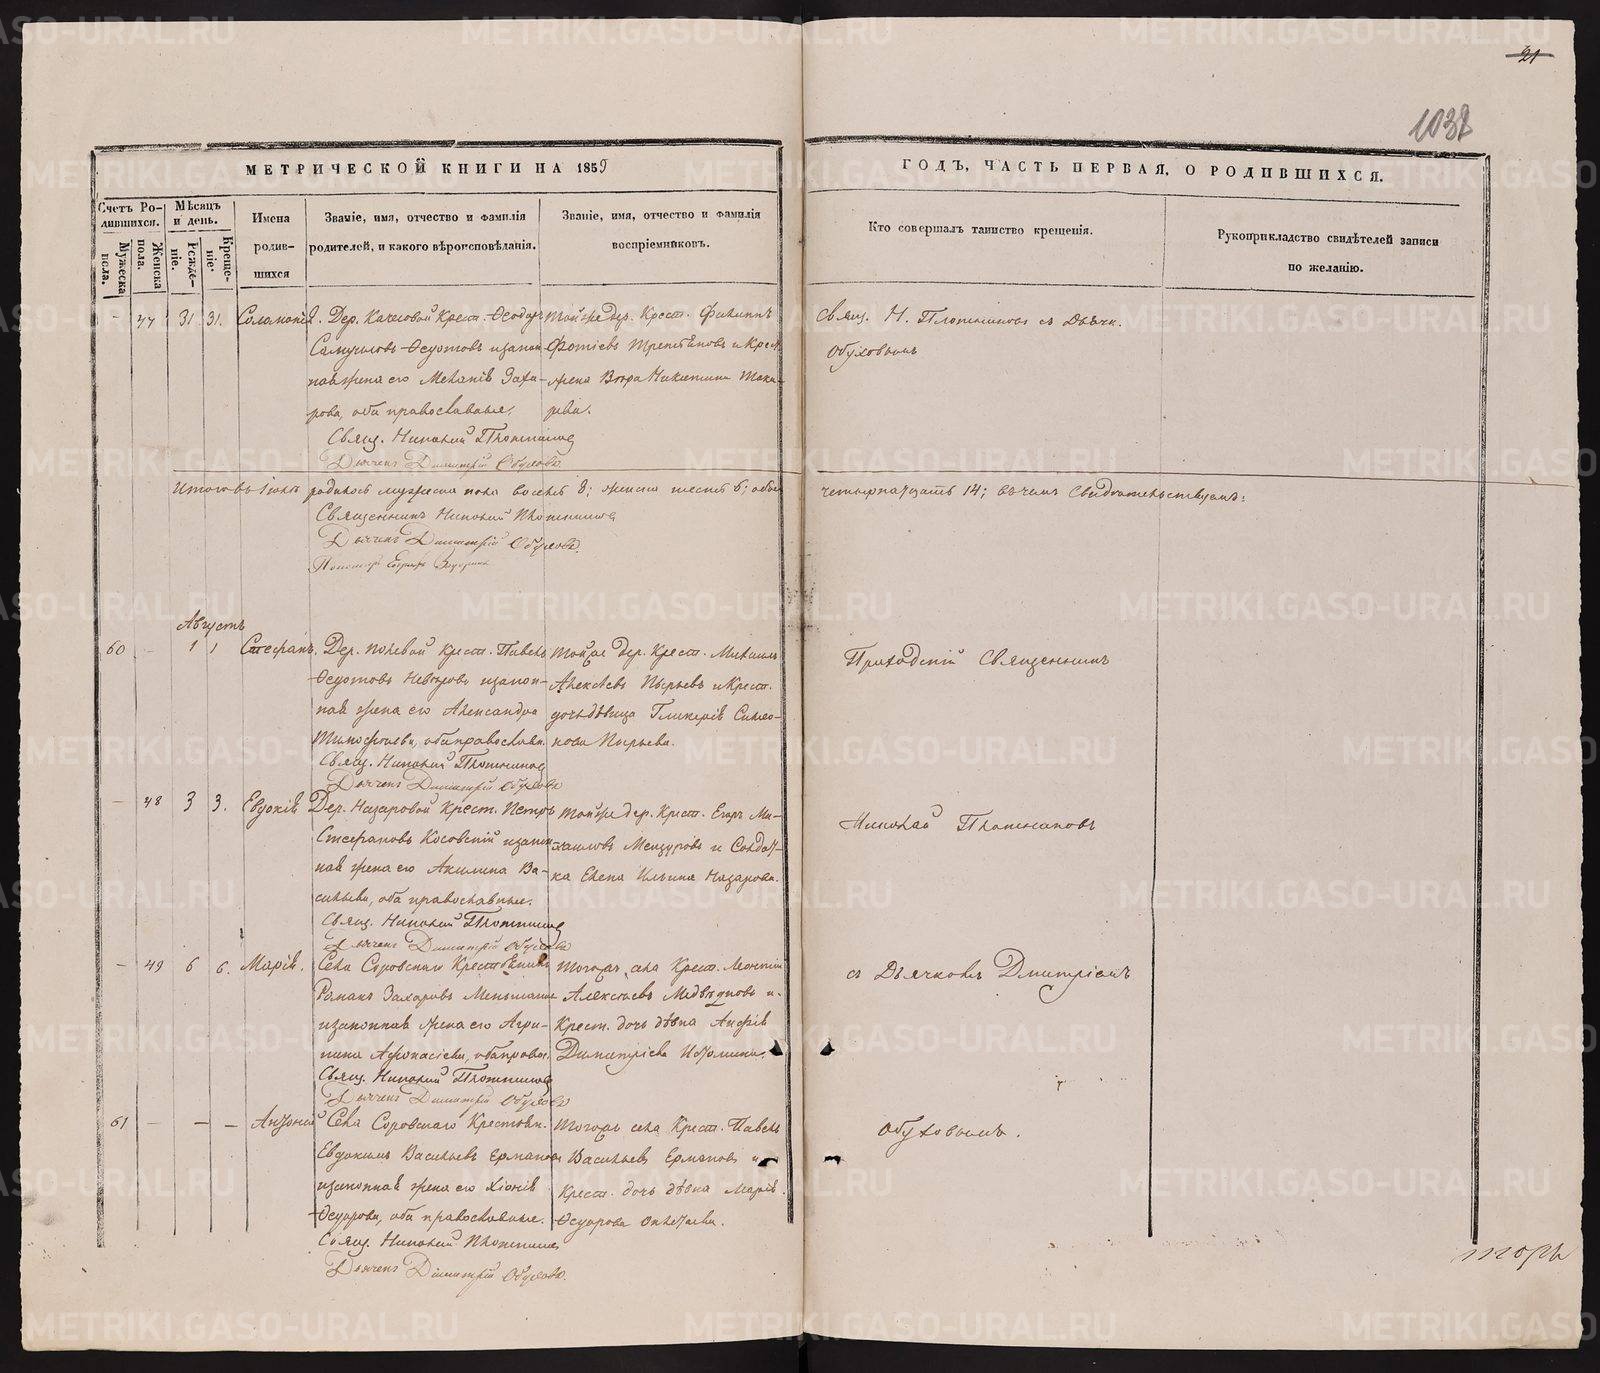 21
1038
МЕТРИЧЕСКОЙ КНИГИ НА 1859
ГОДЪ, ЧАСТЬ ПЕРВАЯ, О РОДИВШИХСЯ.
Счетъ Ро-
дившихся.
Мужеска
пола.
Женска
пола.
Мѣсяцъ
и день.
Рожде-
ніе.
Креще-
ніе.
Имена
родив-
шихся
Званіе, имя, отчество и фамилія
родителей, и какого вѣроисповѣданія.
Званіе, имя, отчество и фамилія
воспріемниковъ.
Кто совершалъ таинство крещенія.
Рукоприкладство свидѣтелей записи
по желанію.
31 31. Соломонія. Дер. Крест. Ѳеодоръ
Самуиловъ Ѳедотовъ и закон-
ная жена его Меланія Заха-
рова, оба православные.
Свящ. Николай Плотниковъ
Дьячекъ Димитрій Обуховъ
Тойже дер. Крест. Филиппъ
Фотіевъ и Крест.
жена Вѣра Никитина
Свящ. Н. Плотниковъ съ Дьячк.
Обуховымъ
Итого въ Іюлѣ родилось мужеска пола восемь 8; женска шесть 6; обоего
четырнадцать 14; въ чемъ свидѣтельствуемъ:
Священникъ Николай Плотниковъ
Дьячекъ Димитрій Обуховъ.
Августъ
60 - 1 1 Стефанъ. Дер. Полевой Крест. Павелъ
Ѳедотовъ и закон-
ная жена его Александра
Тимофеева, оба православн.
Свящ. Николай Плотниковъ
Дьячекъ Димитрій Обуховъ
Тойже дер. Крест. Михаилъ
Алексѣевъ Пырьевъ и Крест.
дочь дѣвица Гликерія Симео-
нова Пырьева.
Приходскій Священникъ
- 48 3 3. Евдокія Дер. Назаровой Крест. Петръ
Стефановъ Косовскій и закон
ная жена его Акилина Ва-
сильева, оба православные.
Свящ. Николай Плотниковъ
Дьячекъ Димитрій Обуховъ
Тойже дер. Крест. Егоръ Ми-
хаиловъ и Солдат-
ка Елена Ильина Назарова.
Николай Плотниковъ
- 49 6 6. Марія. Села Соровскаго Крестьянинъ
Романъ Захаровъ
и законная жена его Агри-
пина Афонасіева, оба правос.
Свящ. Николай Плотниковъ
Дьячекъ Димитрій Обуховъ
Тогожъ села Крест. Леонтій
Алексѣевъ Медвѣдковъ и
Крест. дочь дѣвка Анфія
Димитріева
съ Дьячкомъ Дмитріемъ
61 - - - Антоній Села Соровскаго Крестьян.
Евдокимъ Васильевъ Ермаковъ
и законная жена его Хіонія
Ѳедорова, оба православные.
Свящ. Николай Плотниковъ
Дьячекъ Димитрій Обуховъ.
Тогожъ села Крест. Павелъ
Васильевъ Ермаковъ и
Крест. дочь дѣвка Марія
Ѳедорова
Обуховымъ.